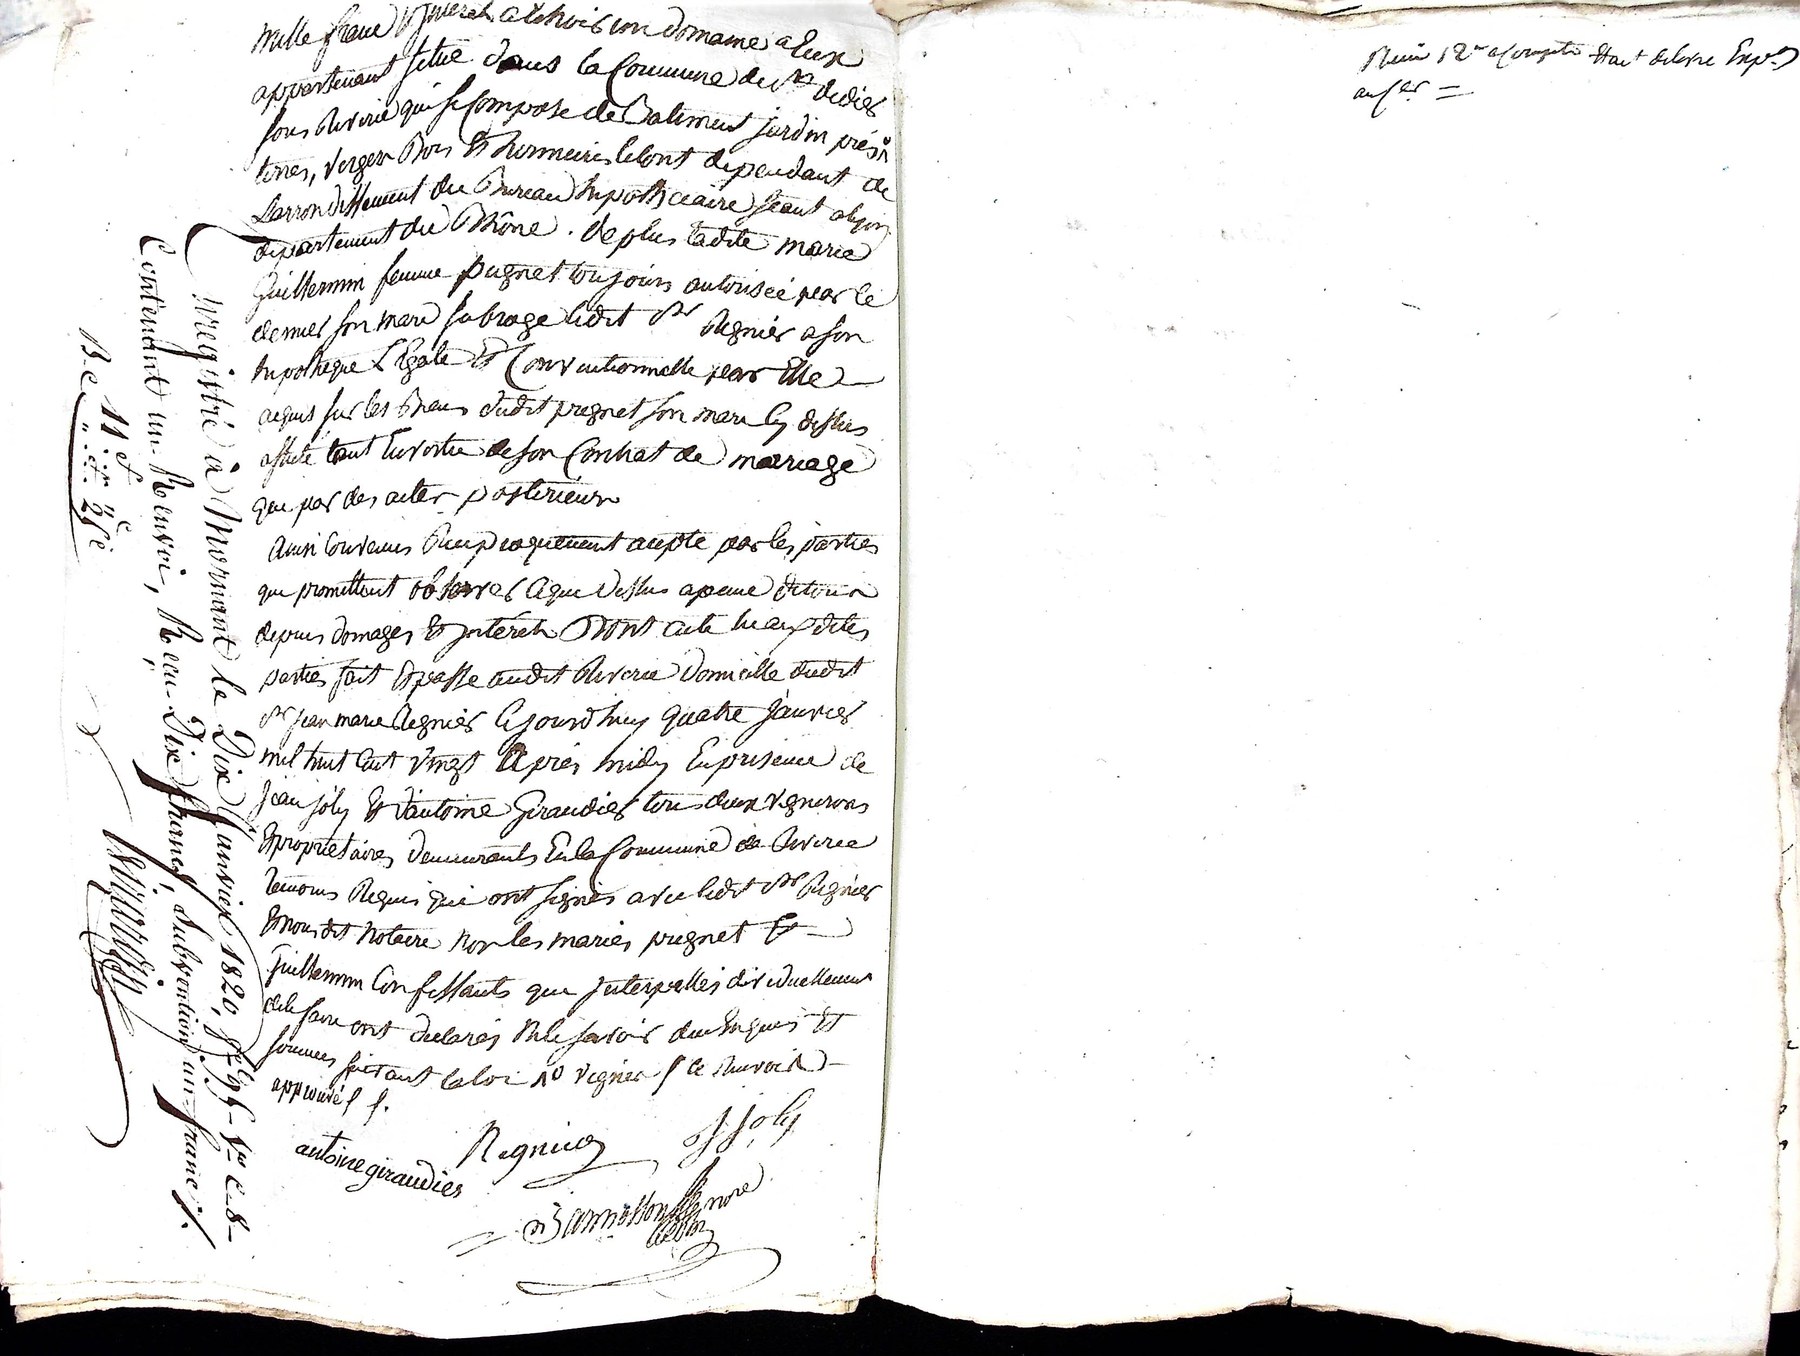 mille francs & interets a scavoir un domaine a Eux
appartenant situé dans la Commune de St didier
sous Riverie qui se Compose de Batiment jardin prés
terres, verger Bois & hermeures le tout dependant de
Larrondissement du Bureau hipothecaire séant a Lyon
departement du Rhône. de plus ladite marie
Guillermin femme pugnet toujours autorisée par le
dernier son mari subroge ledit Sr Regnier a son
hipotheque Légale & Conventionnelle par Elle
aquis sur les Biens dudit pugnet son mari Cy dessus
affecté tant En vertu de son Contrat de mariage
que par des actes postérieurs
Ainsi Convenus Reciproquement accepté par les parties
qui promettent observer Ce que dessus a peine de tous
depens domages & interets Dont acte aux dites
parties fait & passé audit Riverie Domicille dudit
Sr jean marie Regnier Cejourdhuy quatre janvier
mil huit Cent vingt Après midy En présence de
Jean joly & d'antoine Giraudier tous deux vignerons
& proprietaires demeurants En la Commune de Riverie
témoins Requis qui ont signés avec ledit Sr Regnier
& nous dit Notaire Non les mariés pugnet &
Guillermin Confessants qui Interpellés individuellement
de le faire ont declarés Ne le savoir de Enquis Et
sommés suivant la loi le Renvoi
approuvé
Regnier
J joly
antoine giraudier
Jannesson nore
Enregistré à Mornant le Dix Janvier 1820, fo 95 Vo C. 8
Contenant un Renvoi, Reçu Dix francs, Subvention un franc
Bc 11 f
Reçu 12 a Compte